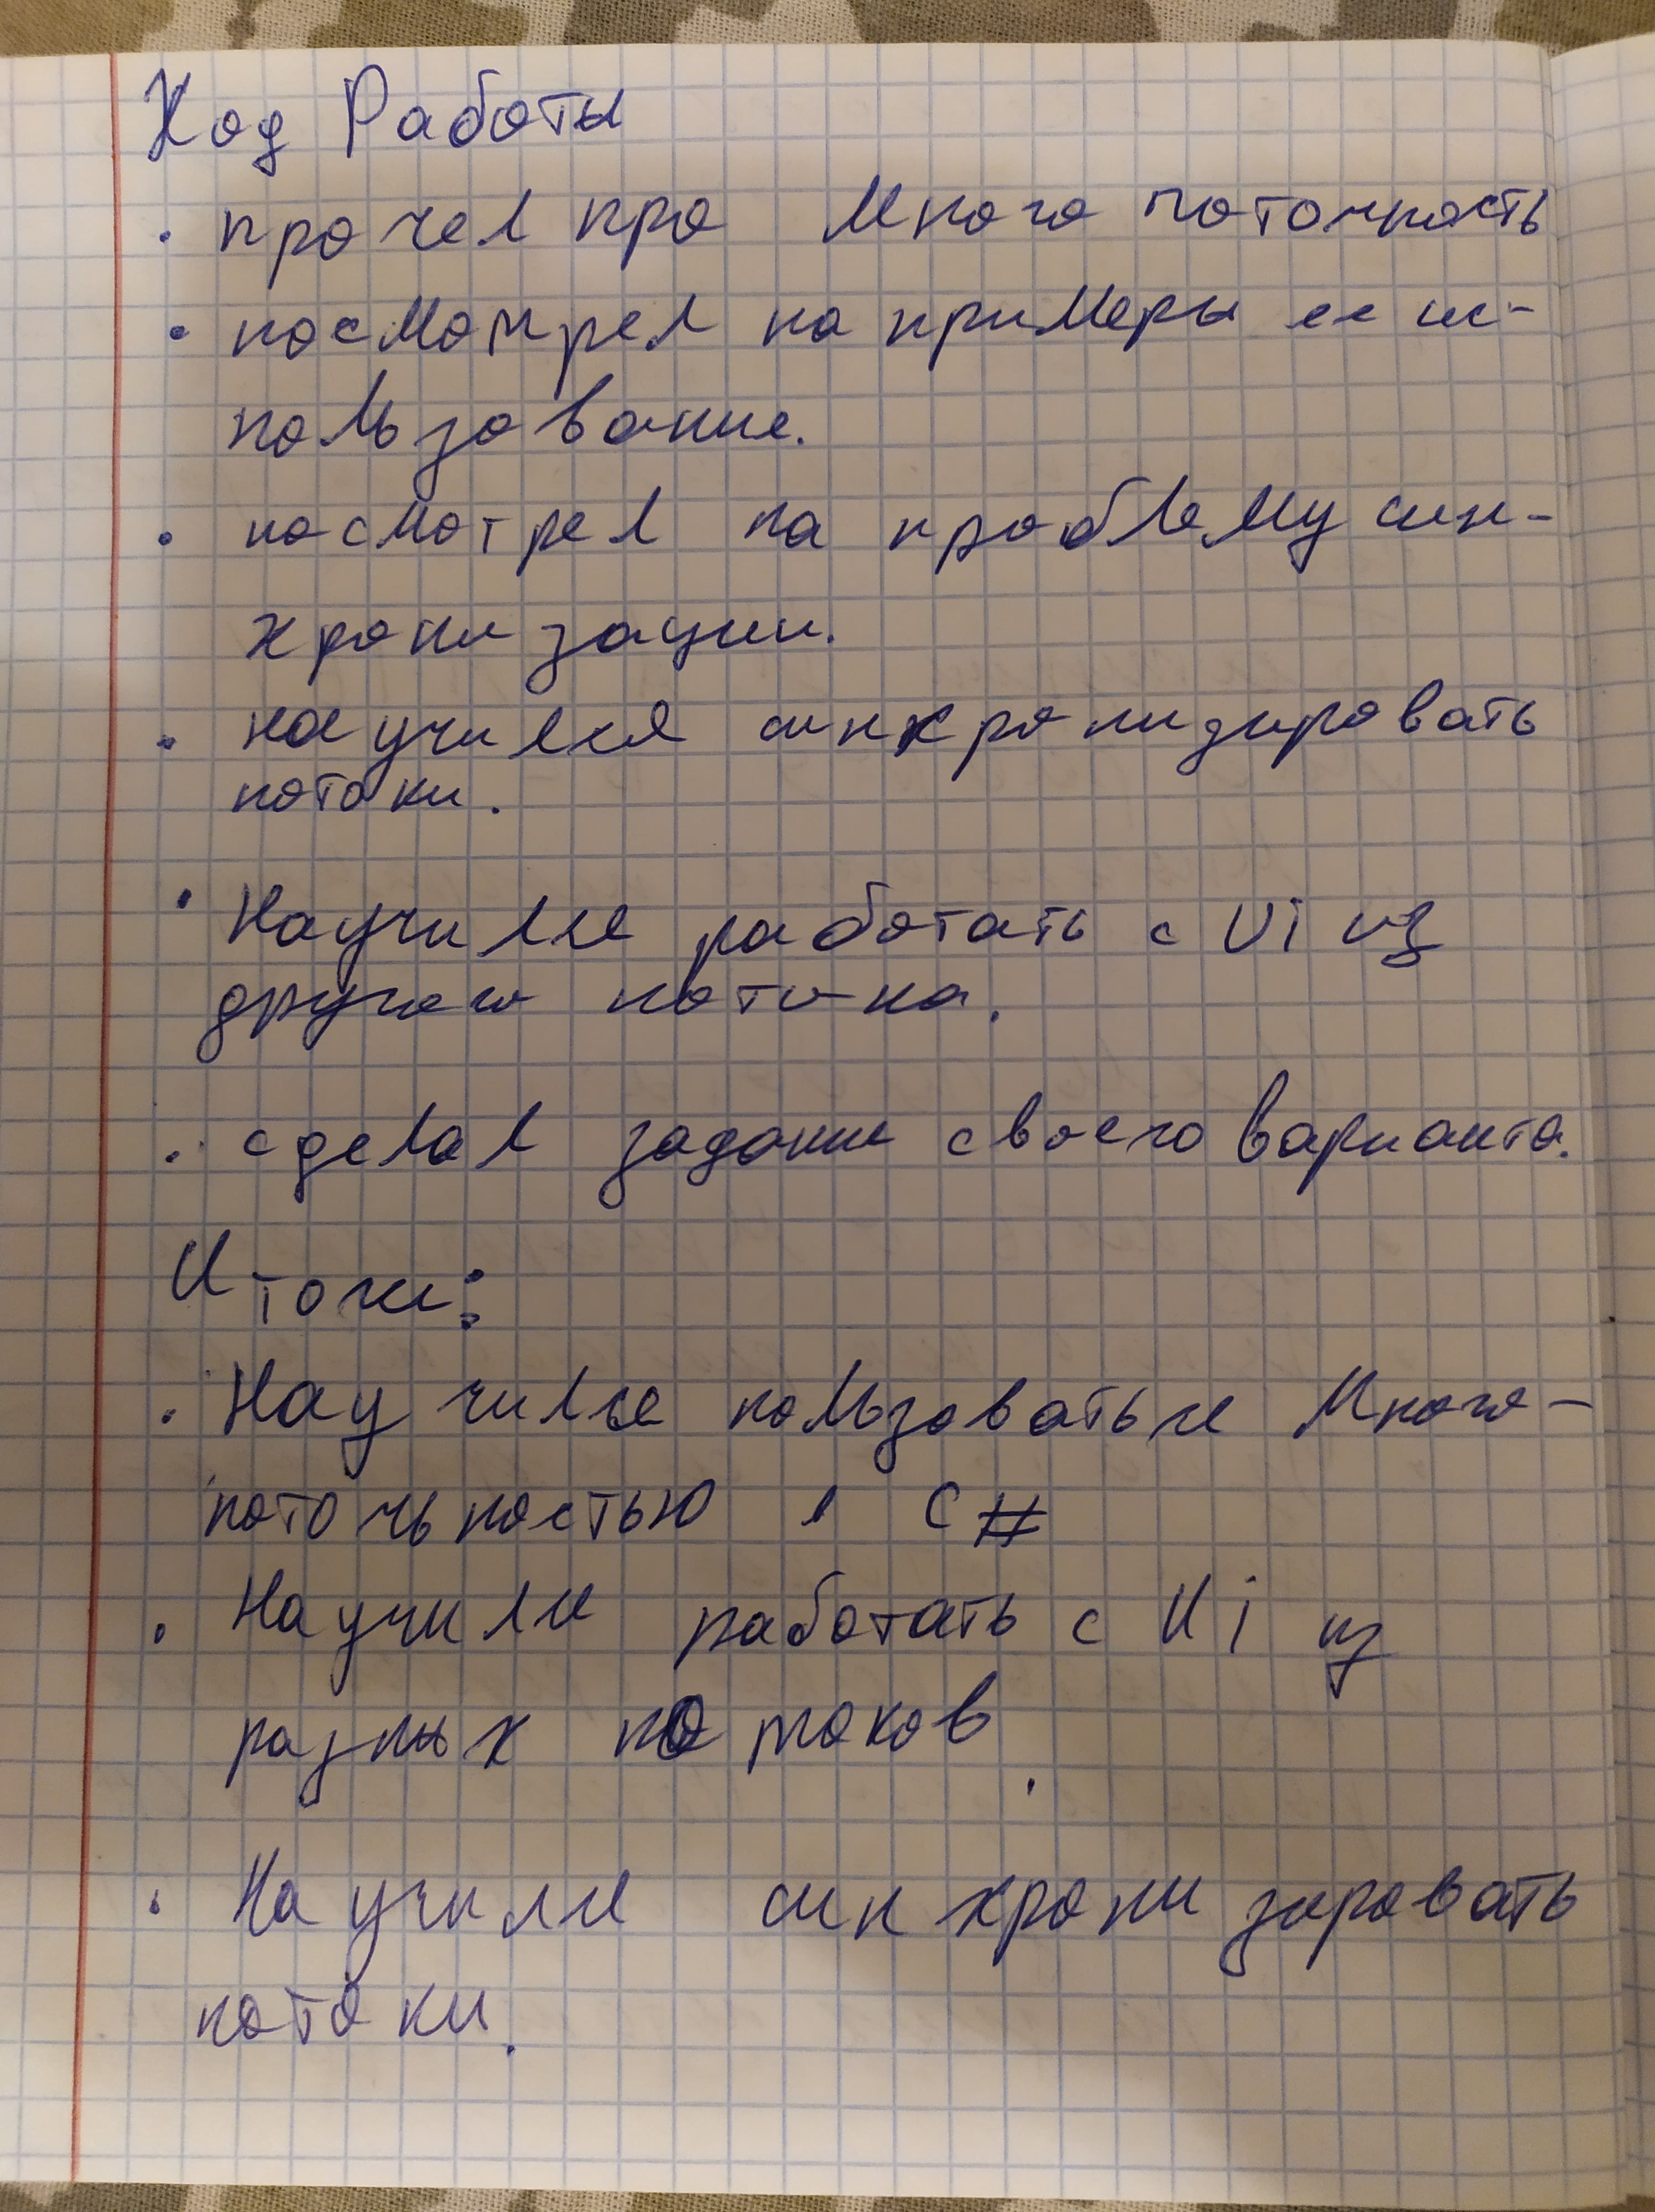 Ход Работы
· прочел про Много поточность
· посмотрел на примеры ее ис-
пользование.
· посмотрел на проблему син-
хронизации.
· научился синхронизировать
потоки.
· Научился работать с Ui из
другого потока.
· сделал задание своего варианта.
Итоги:
· Научился пользоваться Много-
поточьностью в C#
· Научился работать с Ui из
разных потоков.
· Научился синхронизировать
потоки.